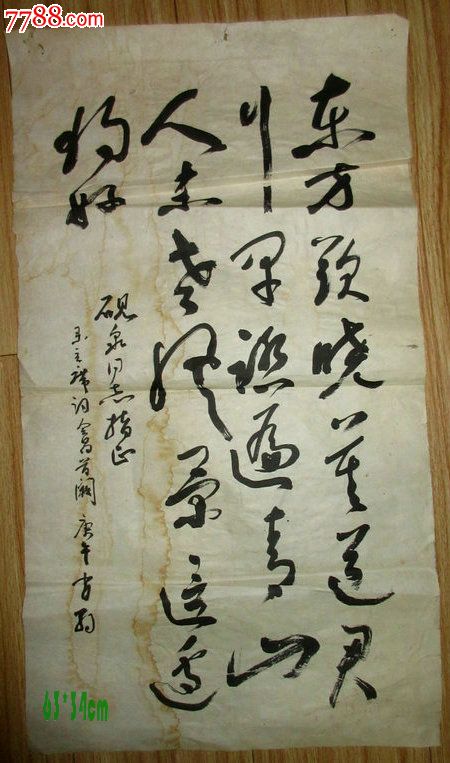 7788.com
东方欲晓莫道君
行早踏遍青山
人未老风景这边
独好
砚泉同志指正
毛主席词会昌首阕 庚午
63*34cm